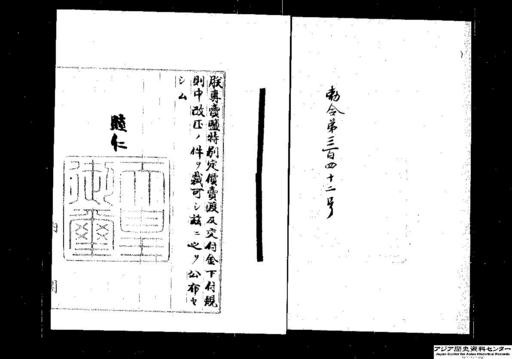 勅令第三百四十二号
朕專賣鹽特別定價賣渡及交付金下付規
則中改正ノ件ヲ裁可シ茲ニ之ヲ公布セ
シム
睦仁
天皇
御璽
内閣
アジア歴史資料センター
Japan Center for Asian Historical Records